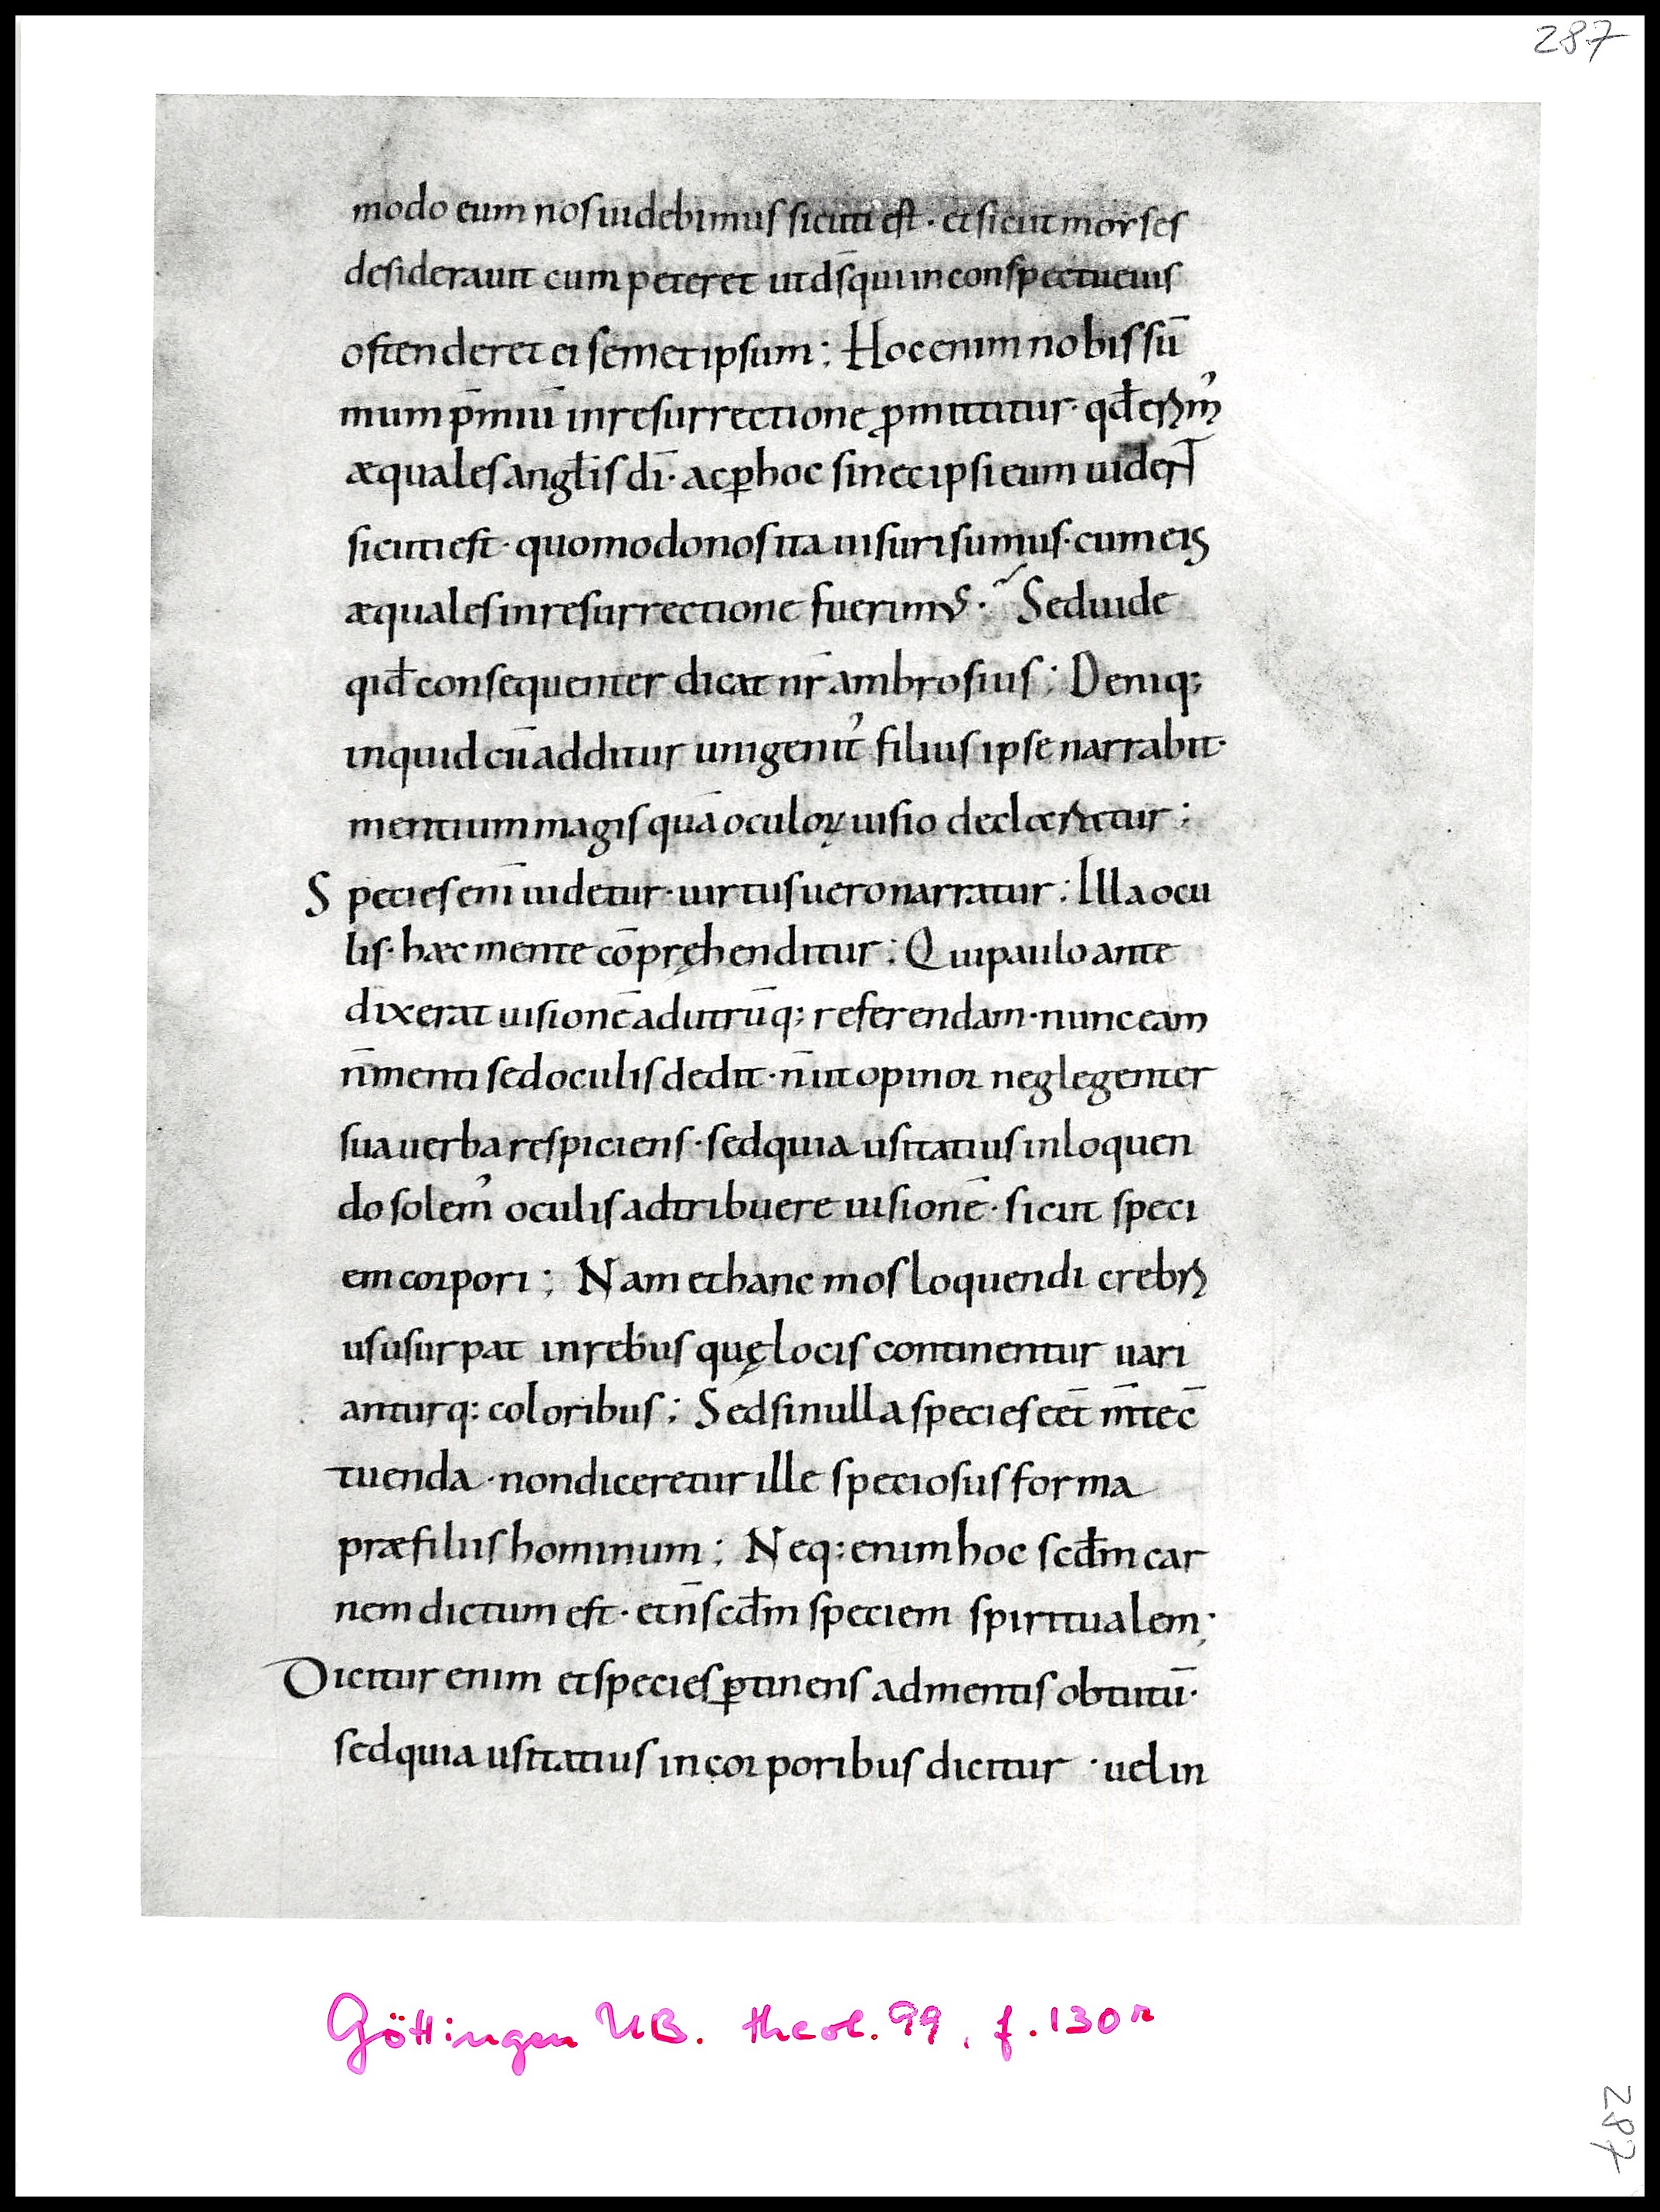 287
modo eum nos uidebimus sicuti est · et sicut moyses
desiderauit cum peteret ut d̄s qui in conspectu eius
ostenderet ei semetipsum ; Hoc enim nobis sū
mum p̄miū in resurrectione ꝓmittitur · qđ erim᾿
æquales angłis dī · ac ꝑ hoc sinec ipsi eum uider̄t
sicuti est · quomodo nos ita uisuri sumus · cum eis
æquales in resurrectione fuerimus · Sed uide
qid̄ consequenter dicat nr̄ ambrosius ; Deniq;
inquid cū additur unigenit᾿ filius ipse narrabit ·
mentium magis quā oculoꝝ uisio declaretur ;
Species enī uidetur · uirtus uero narratur ; Illa ocu
lis · hæc mente cōpręhenditur ; Qui paulo ante
dixerat uisionē ad utrūq; referendam · nunc eam
n̄ menti sed oculis dedit · n̄ ut opinor neglegenter
sua uerba respiciens · sed quia usitatius in loquen
do solem᾿ oculis adtribuere uisionē · sicut speci
em corpori ; Nam et hanc mos loquendi crebri
us usurpat in rebus quę locis continentur uari
anturq; coloribus ; Sed si nulla species eēt m̄te c̄
tuenda · non diceretur ille speciosus forma
præ filiis hominum ; Neq; enim hoc scđm car
nem dictum est · et n̄ scđm speciem spiritualem ;
Dicitur enim et species ꝑtinens ad mentis obtutū ·
sed quia usitatius in corporibus dicitur · uel in
Göttingen UB. theol. 99, f. 130r
287